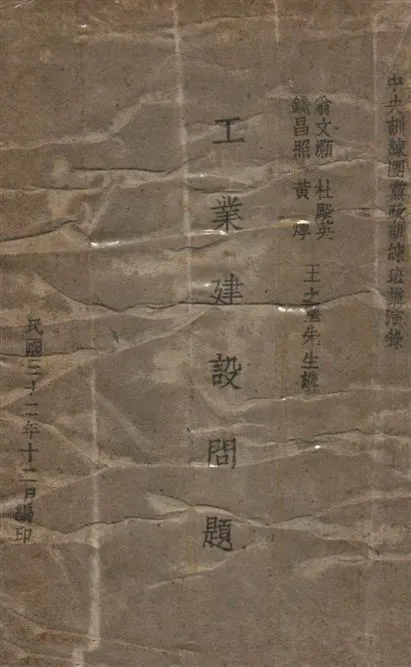 中央訓練團黨政訓練班講演錄
翁文灝 杜殿英
錢昌照 黃 煇
王之璽先生講
工業建設問題
民國三十二年十二月編印